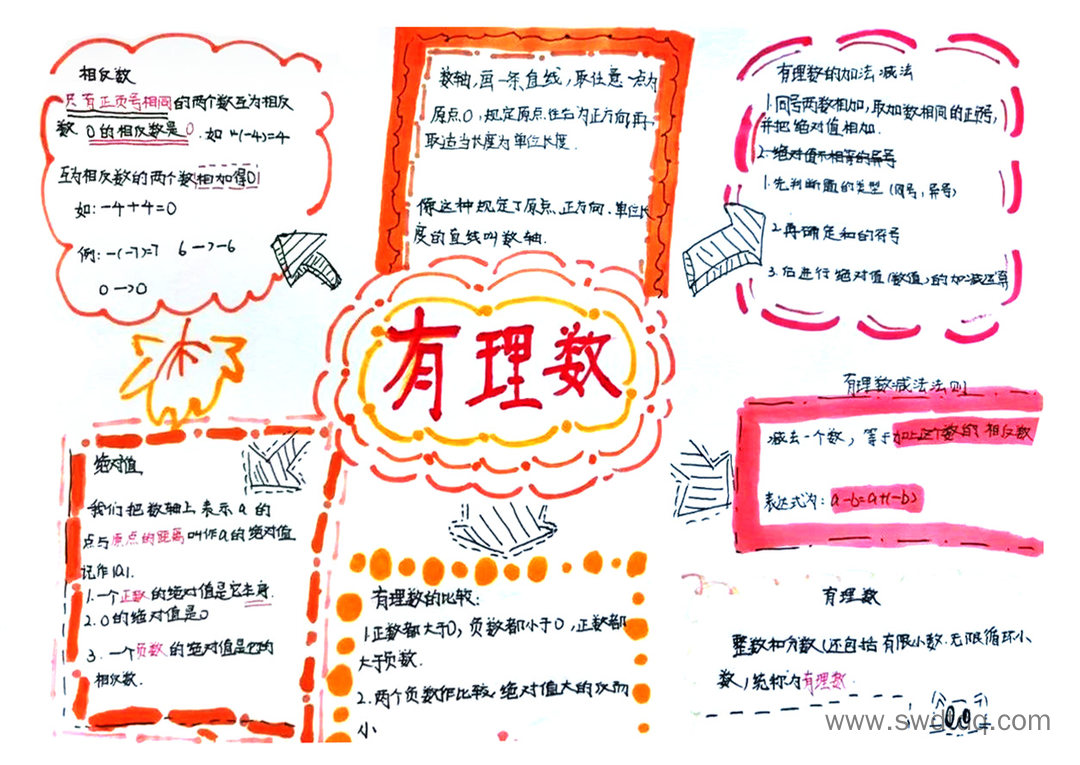 相反数
只有正负号相同的两个数互为相反
数 0的相反数是0. 如 -(-4)=4
互为相反数的两个数相加得0
如: -4+4=0
例: -(-7)=7 6->-6
0->0
数轴,画一条直线,取任意一点为
原点0,规定原点往右为正方向,再
取适当长度为单位长度.
像这种规定了原点、正方向、单位长
度的直线叫数轴.
有理数的加法减法
1.同号两数相加,取加数相同的正负号,
并把绝对值相加.
2.绝对值不相等的异号
1.先判断题的类型(同号,异号)
2.再确定和的符号
3.后进行绝对值(数值)的加减运算
有理数
有理数减法法则
减去一个数,等于加上这个数的相反数
表达式为: a-b=a+(-b)
绝对值
我们把数轴上表示a的
点与原点的距离叫作a的绝对值
记作|a|.
1.一个正数的绝对值是它本身.
2.0的绝对值是0
3.一个负数的绝对值是它的
相反数.
有理数的比较:
1.正数都大于0,负数都小于0,正数都
大于负数.
2.两个负数作比较,绝对值大的反而
小
有理数
整数和分数(还包括有限小数.无限循环小
数)统称为有理数.